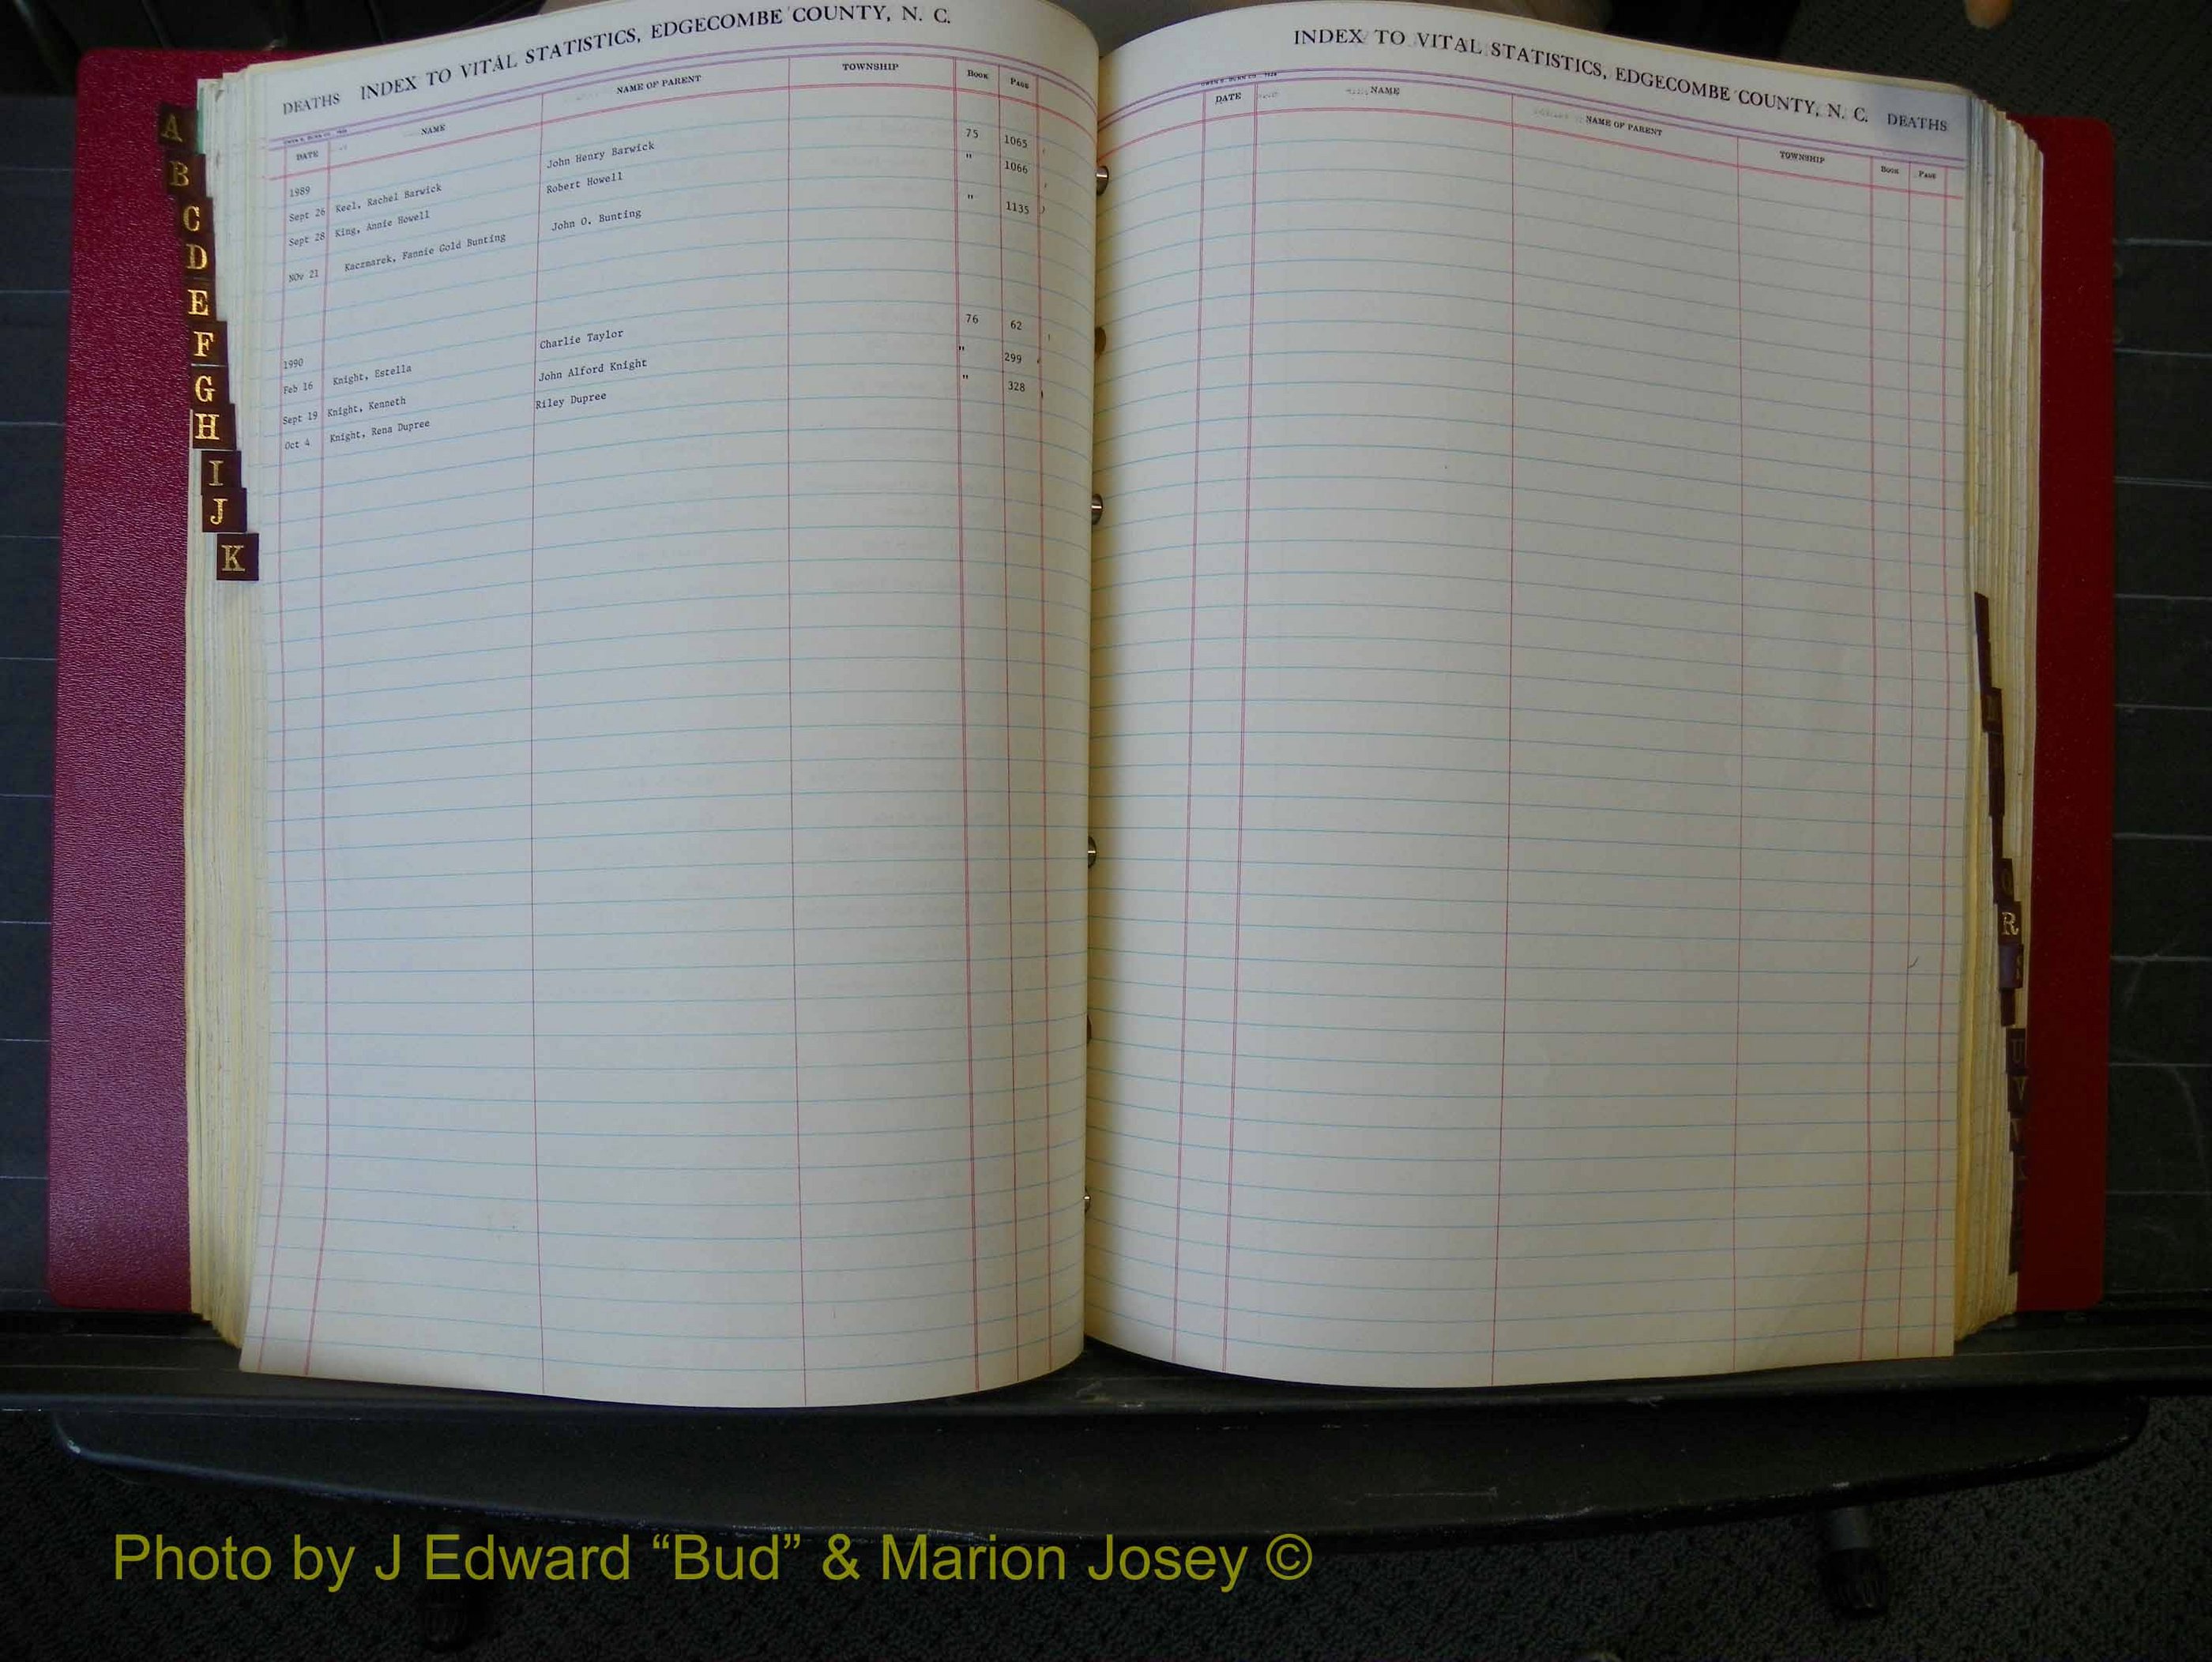 DEATHS INDEX TO VITAL STATISTICS, EDGECOMBE COUNTY, N. C.
DATE NAME NAME OF PARENT TOWNSHIP Book Page
1989
Sept 26 Keel, Rachel Barwick John Henry Barwick 75 1065
Sept 28 King, Annie Howell Robert Howell " 1066
NOv 21 Kaczmarek, Fannie Gold Bunting John O. Bunting " 1135
1990
Feb 16 Knight, Estella Charlie Taylor 76 62
Sept 19 Knight, Kenneth John Alford Knight " 299
Oct 4 Knight, Rena Dupree Riley Dupree " 328
A
B
C
D
E
F
G
H
I
J
K
INDEX TO VITAL STATISTICS, EDGECOMBE COUNTY, N. C. DEATHS
DATE NAME NAME OF PARENT TOWNSHIP Book Page
R
S
U
V
Photo by J Edward “Bud” & Marion Josey ©